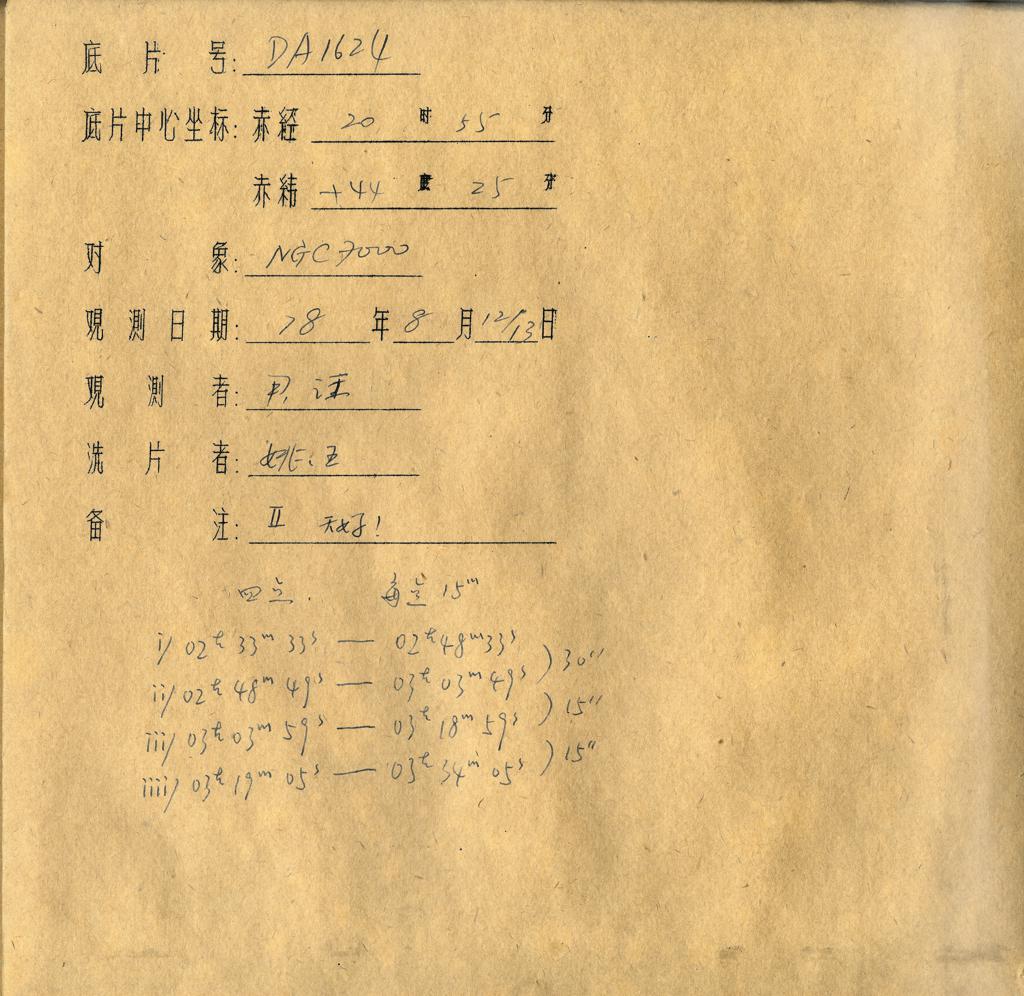 底片号: DA1624
底片中心坐标: 赤経 20 时 55 分
赤緯 +44 度 25 分
对象: NGC7000
观测日期: 78 年 8 月 12/13 日
观测者: 尹, 汪
洗片者: 姚. 王
备注: II 天好!
四点. 每点 15ᵐ
i) 02ʰ 33ᵐ 33ˢ — 02ʰ 48ᵐ 33ˢ
ii) 02ʰ 48ᵐ 49ˢ — 03ʰ 03ᵐ 49ˢ ) 30"
iii) 03ʰ 03ᵐ 59ˢ — 03ʰ 18ᵐ 59ˢ ) 15"
iiii) 03ʰ 19ᵐ 05ˢ — 03ʰ 34ᵐ 05ˢ ) 15"